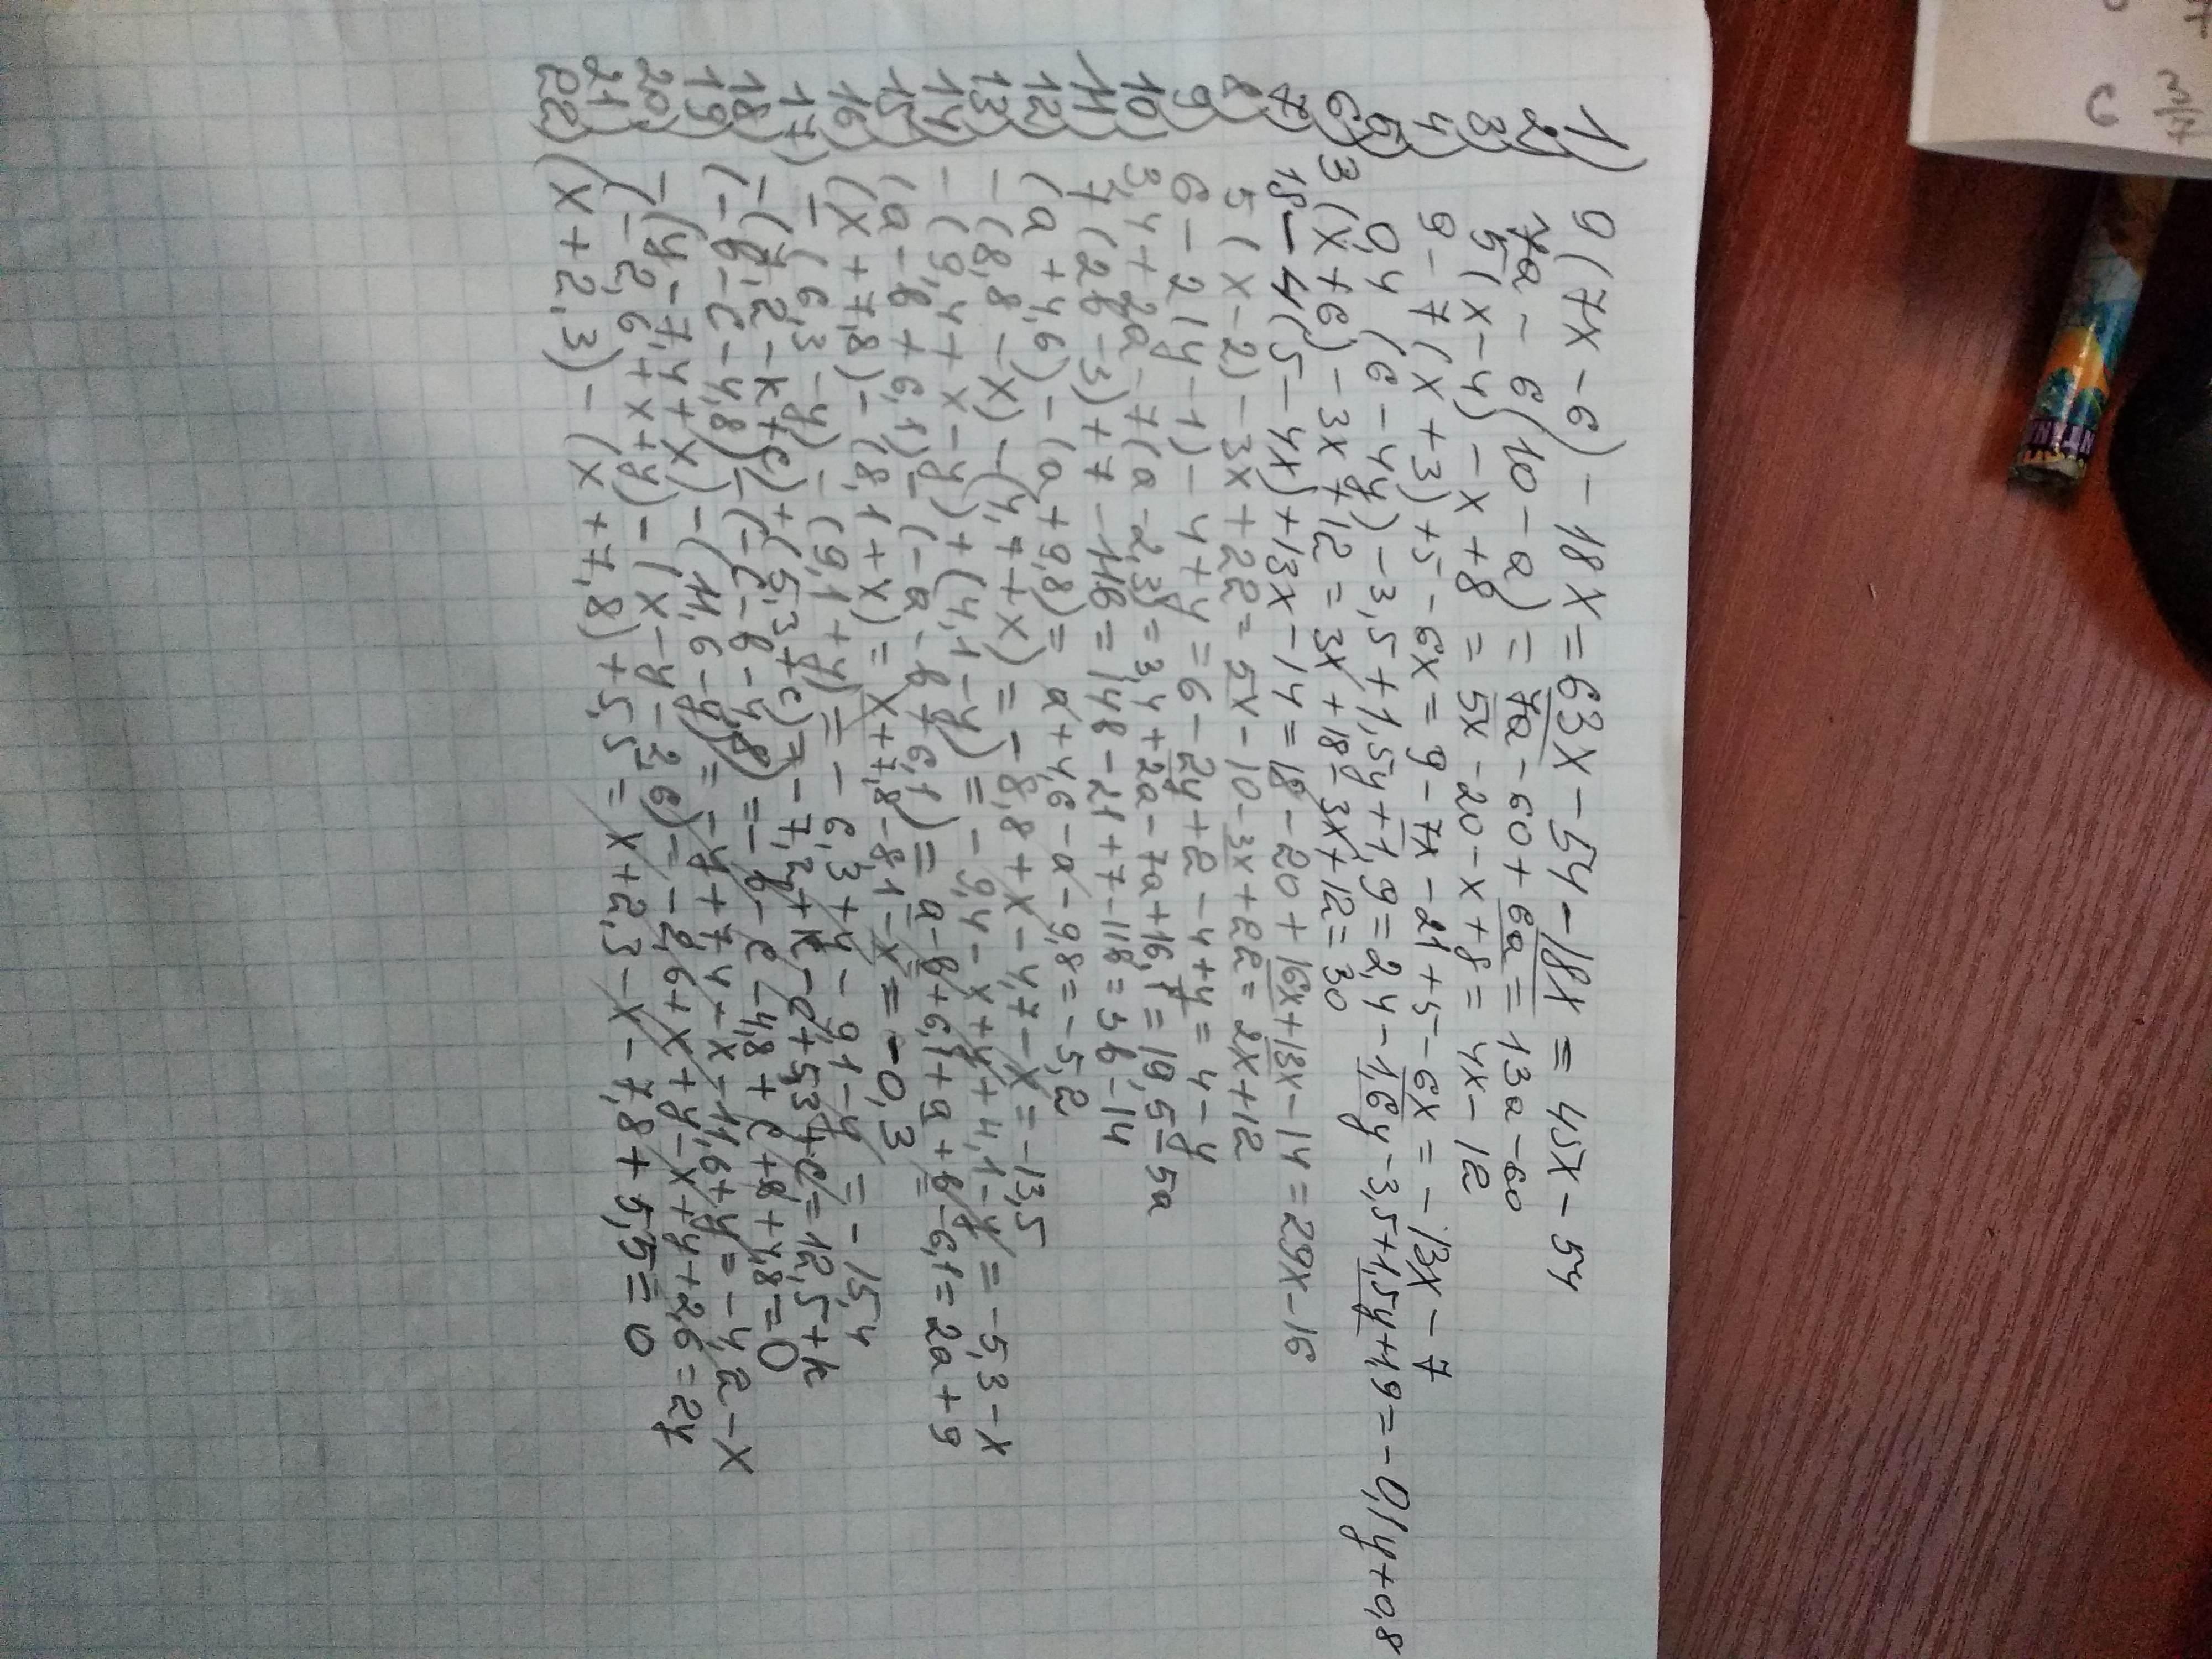 1) 9(7x-6)-18x=63x-54-18x=45x-54
2) 7a-6(10-a)=7a-60+6a=13a-60
3) 5(x-4)-x+8=5x-20-x+8=4x-12
4) 9-7(x+3)+5-6x=9-7x-21+5-6x=-13x-7
5) 0,4(6-4y)-3,5+1,5y+1,9=2,4-1,6y-3,5+1,5y+1,9=-0,1y+0,8
6) 3(x+6)-3x+12=3x+18-3x+12=30
7) 18-4(5-4x)+13x-14=18-20+16x+13x-14=29x-16
8) 5(x-2)-3x+22=5x-10-3x+22=2x+12
9) 6-2(y-1)-4+y=6-2y+2-4+y=4-y
10) 3,4+2a-7(a-2,3)=3,4+2a-7a+16,1=19,5-5a
11) 7(2b-3)+7-11b=14b-21+7-11b=3b-14
12) (a+4,6)-(a+9,8)=a+4,6-a-9,8=-5,2
13) -(8,8-x)-(4,7+x)=-8,8+x-4,7-x=-13,5
14) -(9,4+x-y)+(4,1-y)=-9,4-x+y+4,1-y=-5,3-x
15) (a-b+6,1)-(-a-b+6,1)=a-b+6,1+a+b-6,1=2a+9
16) (x+7,8)-(8,1+x)=x+7,8-8,1-x=-0,3
17) -(6,3-y)-(9,1+y)=-6,3+y-9,1-y=-15,4
18) -(7,2-k+c)+(5,3+c)=-7,2+k-c+5,3+c=12,5+k
19) (-b-c-4,8)-(-c-b-4,8)=-b-c-4,8+c+b+4,8=0
20) -(y-7,4+x)-(11,6-y)=-y+7,4-x-11,6+y=-4,2-x
21) (-2,6+x+y)-(x-y-2,6)=-2,6+x+y-x+y+2,6=2y
22) (x+2,3)-(x+7,8)+5,5=x+2,3-x-7,8+5,5=0